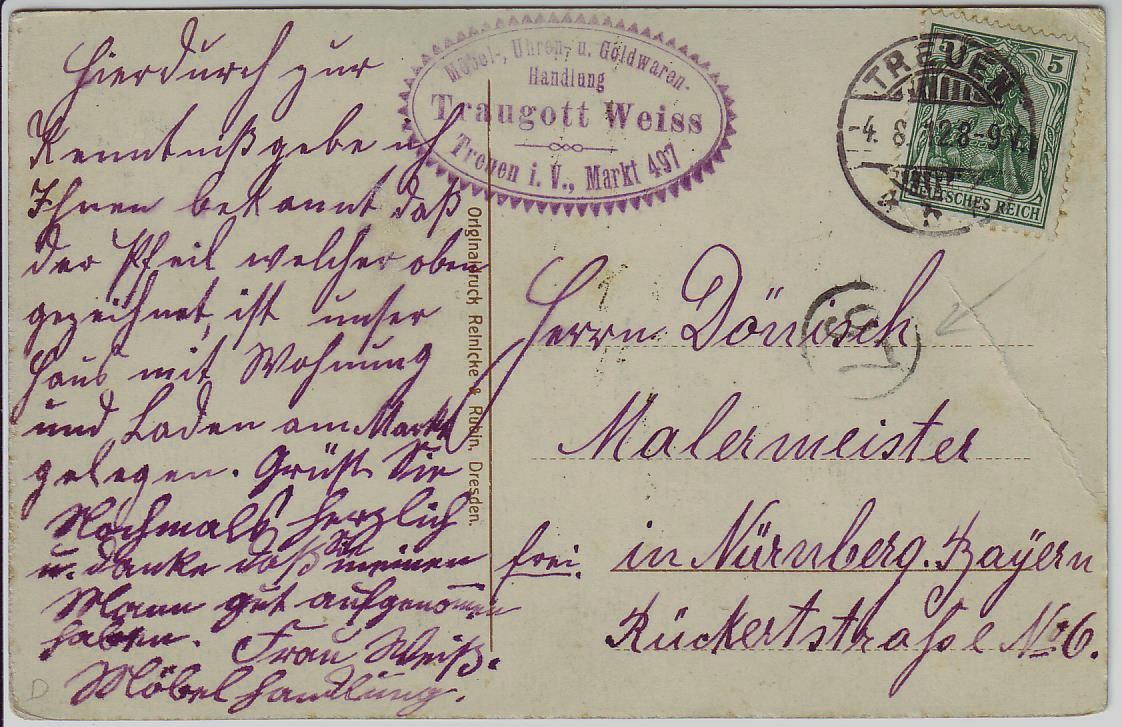 Hierdurch zur
Kenntniß gebe ich
Ihnen bekannt daß
der Pfeil welcher oben
gezeichnet, ist unser
Haus mit Wohnung
und Laden am Markt
gelegen. Grüßt Sie
Nochmals herzlich
u. danke daß Sie meinen
Mann gut aufgenommen
haben. Frau Weiß.
Möbelhandlung.
Möbel-, Uhren- u. Goldwaren-
Handlung
Traugott Weiss
Treuen i. V., Markt 497
Originaldruck Reinicke & Rubin, Dresden.
TREUEN
-4. 8. 12 8-9 V.
5
DEUTSCHES REICH
Herrn Dönisch
Malermeister
frei. in Nürnberg. Bayern
Rückertstraße No 6.
D